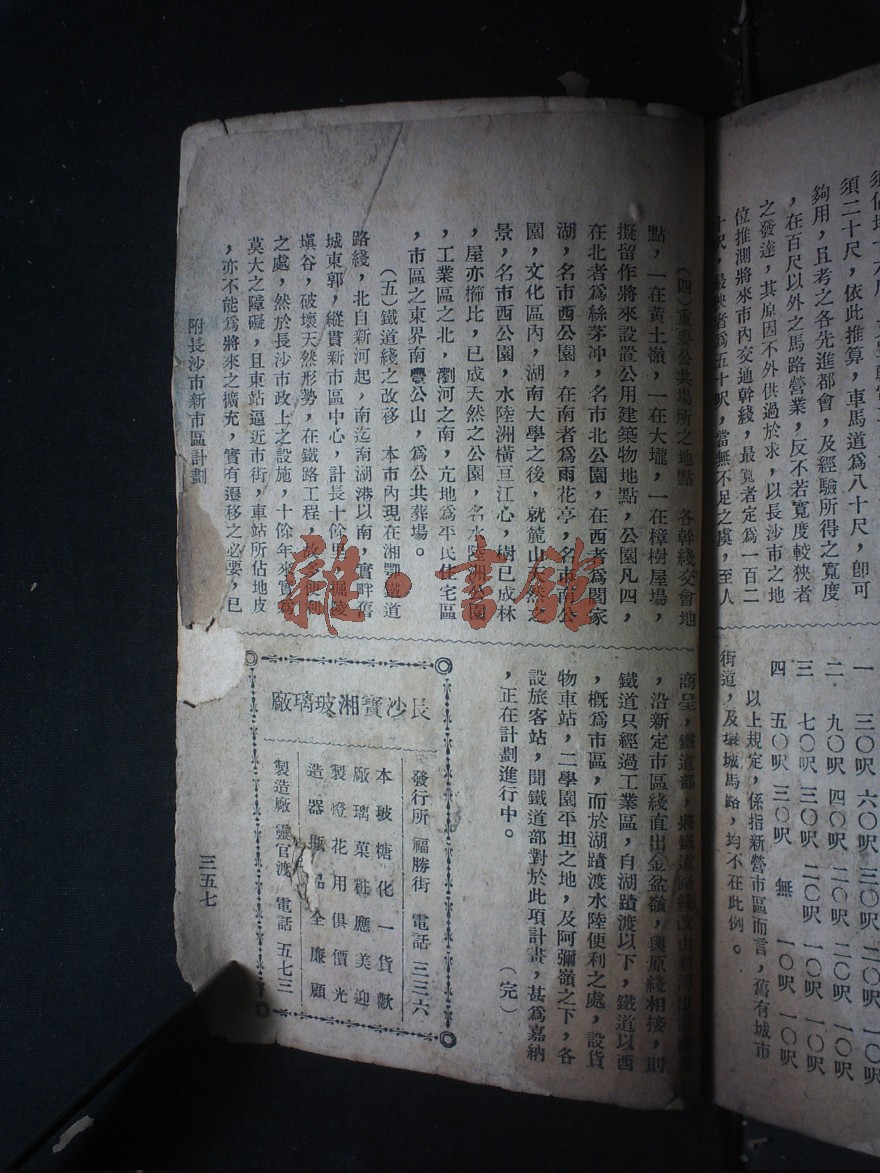 須二十尺，依此推算，車馬道爲八十尺，卽可
夠用，且考之各先進都會，及經驗所得之寬度
，在百尺以外之馬路營業，反不若寬度較狹者
之發達，其原因不外供過於求，以長沙市之地
位推測將來市內交通幹綫，最寬者定爲一百二
十呎，最狹者爲五十呎，當無不足之虞，至人
一　三〇呎　六〇呎　三〇呎
二　九〇呎　四〇呎　二〇呎　二〇呎　一〇呎
三　七〇呎　三〇呎　二〇呎　一〇呎　一〇呎
四　五〇呎　三〇呎　無　一〇呎　一〇呎
以上規定，係指新營市區而言，舊有城市
街道，及環城馬路，均不在此例。
（四）重要公共場所之地點　各幹綫交會地
點，一在黃土嶺，一在大壠，一在樟樹屋場，
擬留作將來設置公用建築物地點，公園凡四，
在北者爲絲茅冲，名市北公園，在西者爲閻家
湖，名市西公園，在南者爲雨花亭，名市南公
園，文化區內，湖南大學之後，就麓山天然之
景，名市西公園，水陸洲橫亘江心，樹已成林
，屋亦櫛比，已成天然之公園，名水陸洲公園
，工業區之北，瀏河之南，亢地爲平民住宅區
，市區之東界南豐公山，爲公共葬場。
（五）鐵道綫之改移　本市內現在湘鄂鐵道
路綫，北自新河起，南迄南湖港以南，實畔舊
城東郭，縱貫新市區中心，計長十餘里，掘陵
塡谷，破壞天然形勢，在鐵路工程，故多便利
之處，然於長沙市政上之設施，十餘年來實爲
莫大之障礙，且東站逼近市街，車站所佔地皮
，亦不能爲將來之擴充，實有遷移之必要，已
商呈，鐵道部，將鐵道路綫改由新河
，沿新定市區綫直出金盆嶺，與原綫相接，則
鐵道只經過工業區，自湖蹟渡以下，鐵道以西
，概爲市區，而於湖蹟渡水陸便利之處，設貨
物車站，二學園平坦之地，及阿彌嶺之下，各
設旅客站，聞鐵道部對於此項計畫，甚爲嘉納
，正在計劃進行中。　（完）
長沙寶湘玻璃廠
發行所　福勝街　電話　三三六
本玻糖化一貨歡
廠璃菓粧應美迎
製燈花用俱價光
造器瓶品全廉顧
製造廠　靈官渡　電話　五七三
附長沙市新市區計劃
三五七
雜·書館